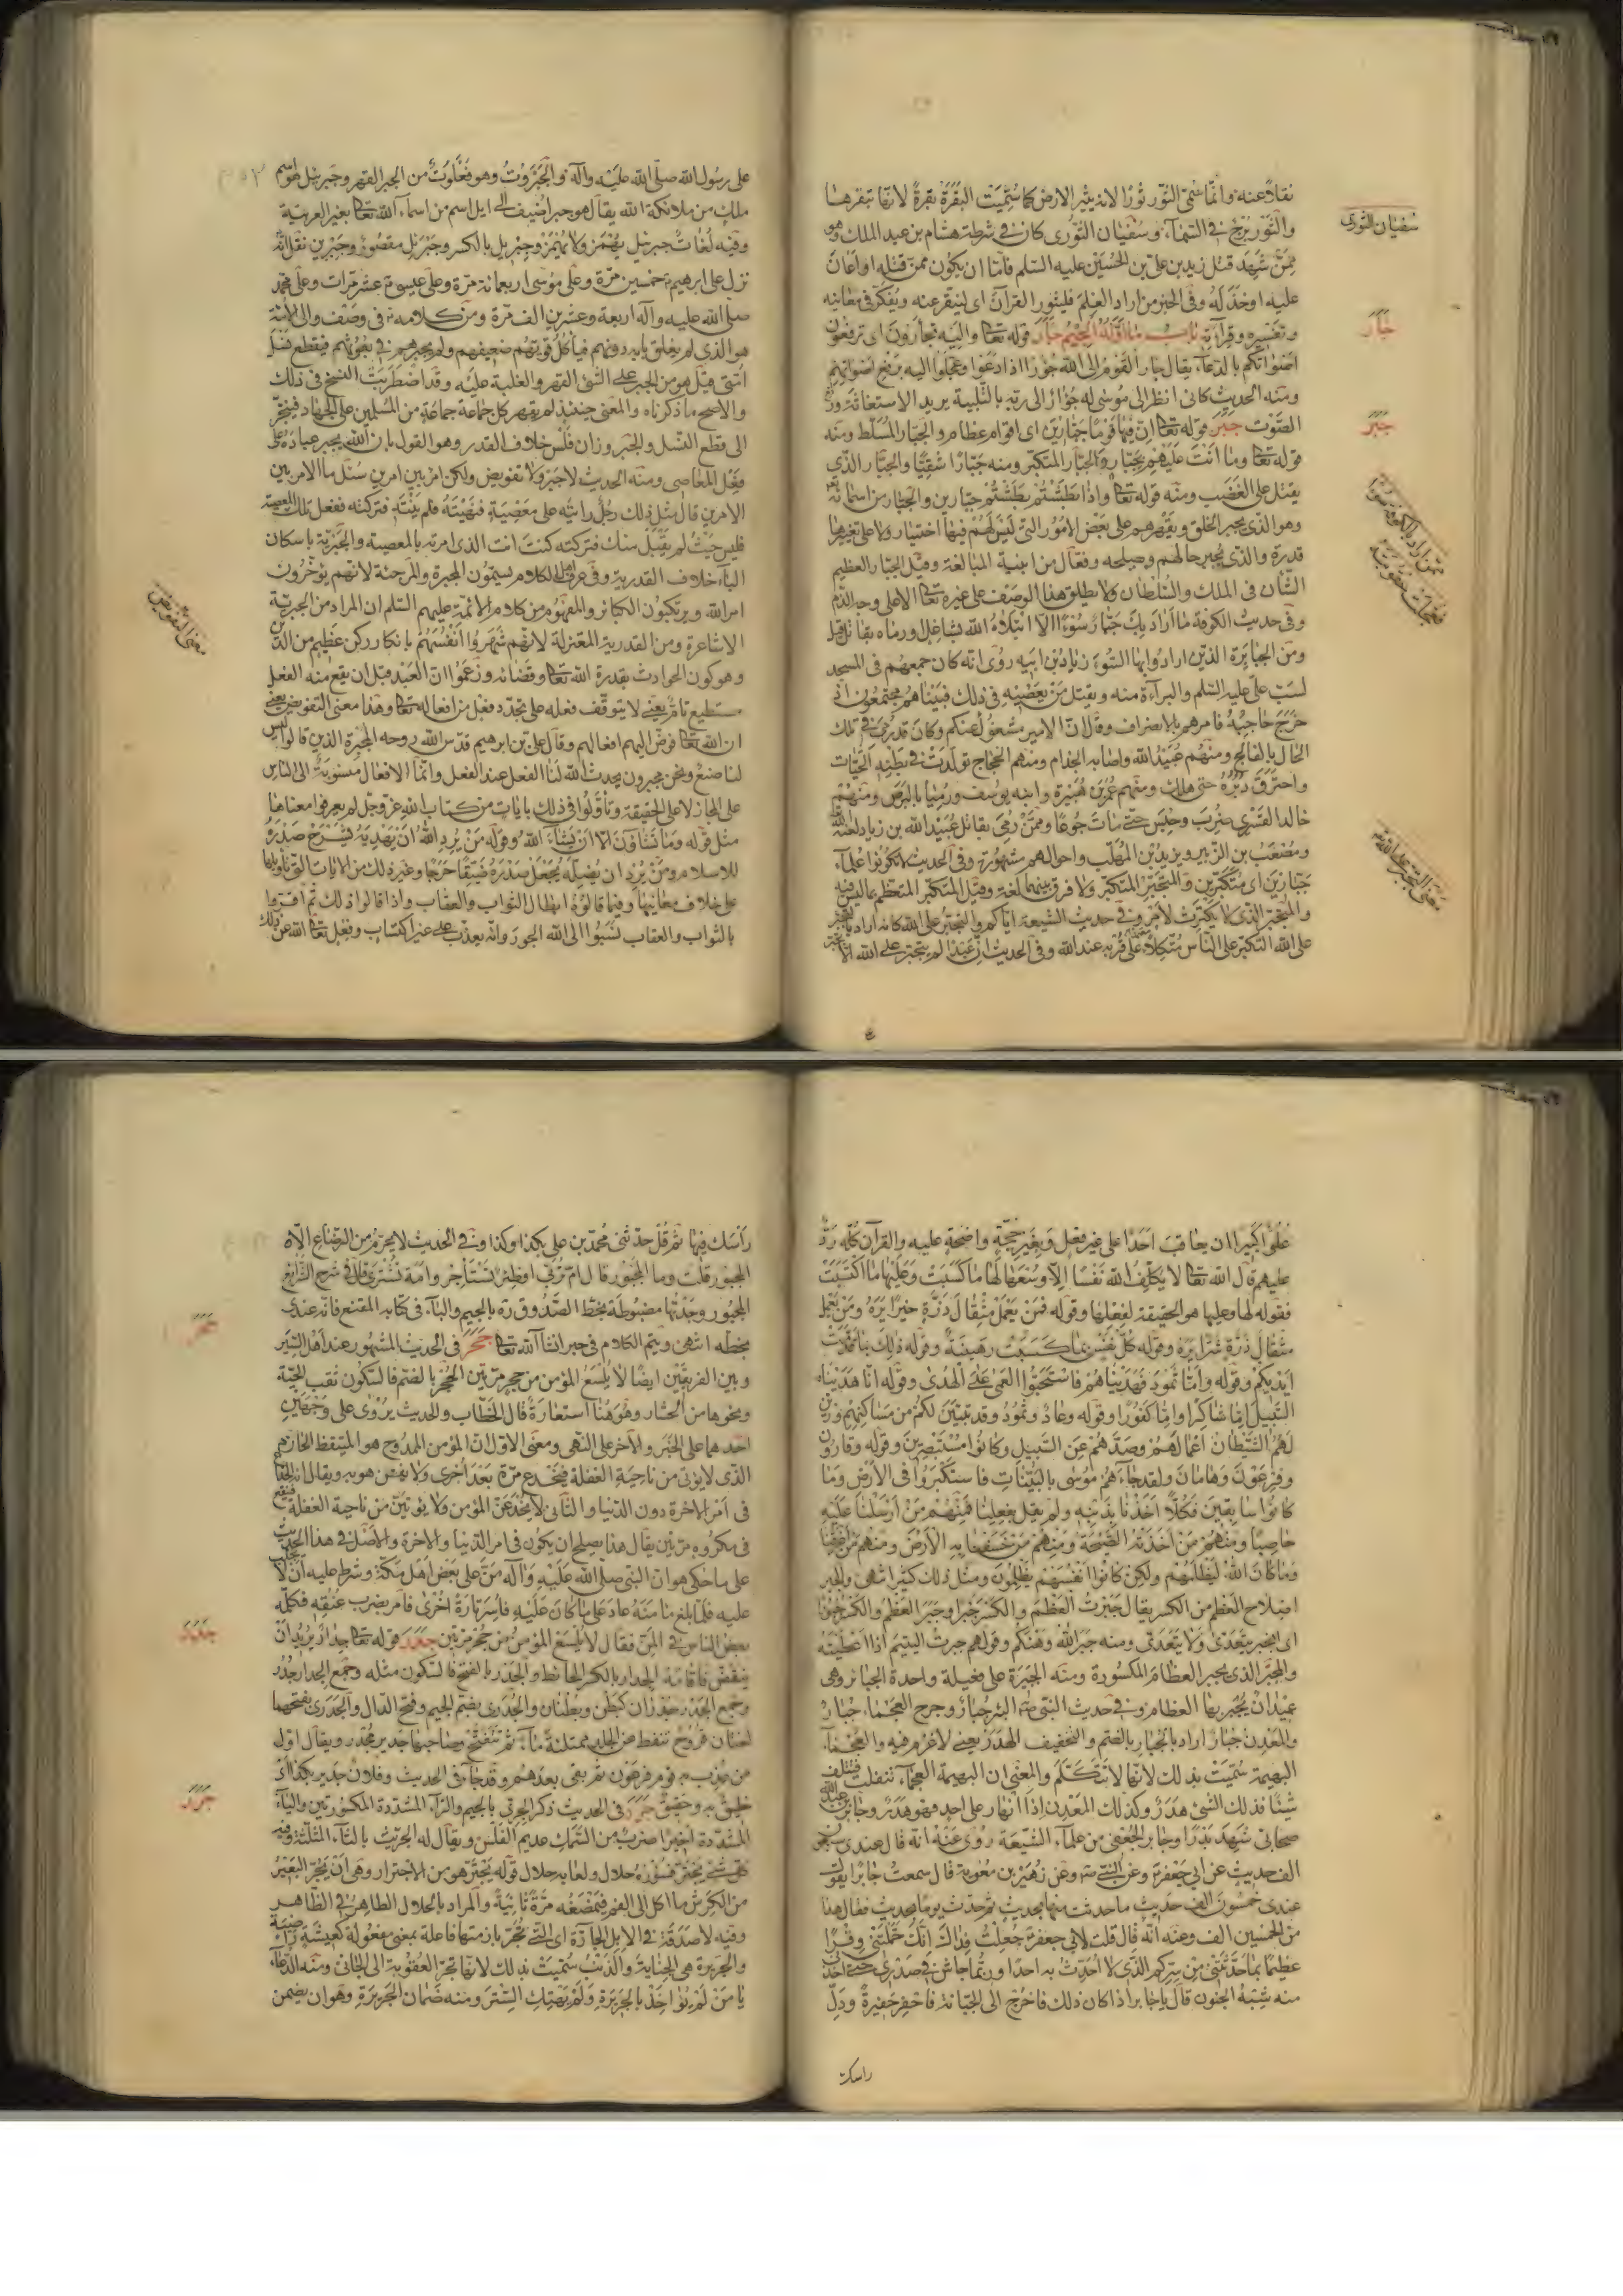 نقلاً عنه وانما سمى الثور ثورا لانه يثير الارض كما سميت البقرة بقرة لانها تبقرها
والثور برج في السماء وسفيان الثوري كان في شرطة هشام بن عبد الملك وهو
ممن شهد قتل زيد بن علي بن الحسين عليه السلم فاما ان يكون ممن قتله او اعان
عليه او خذله وفي الخبر من اراد العلم فليثور القرآن اى لينقر عنه ويفكر في معانيه
وتفسيره وقراءته باب ما اوله الجيم جأر قوله تعا واليه تجأرون اى ترفعون
اصواتكم بالدعاء يقال جأر القوم الى الله جؤرا اذا دعوا وعجلوا اليه برفع اصواتهم
ومنه الحديث كانى انظر الى موسى له جؤار الى ربه بالتلبية يريد الاستغاثة ورفع
الصوت جبر قوله تعا ان فيها قوما جبارين اى اقوام عظام والجبار المسلط ومنه
قوله تعا وما انت عليهم بجبار والجبار المتكبر ومنه جبارا شقيا والجبار الذى
يقتل على الغضب ومنه قوله تعا واذا بطشتم بطشتم جبارين والجبار من اسمائه تعا
وهو الذى يجبر الخلق ويقهرهم على بعض الامور التى ليس لهم فيها اختيار ولا على تغييرها
قدرة والذى يجبر حالهم ويصلحه وفعال من ابنية المبالغة وقيل الجبار العظيم
الشان في الملك والسلطان ولا يطلق هذا الوصف على غيره تعا الا على وجه الذم
وفي حديث الكوفة ما اراد بك جبار سوءا الا ابتلاه الله بشاغل ورماه بقاتل قيل
ومن الجبابرة الذين ارادوا بها السوء زياد بن ابيه روى انه كان جمعهم في المسجد
لسب علي عليه السلم والبراءة منه ويقتل من يعصيه في ذلك فبينا هم مجتمعون اذ
خرج حاجبه فامرهم بالانصراف وقال ان الامير مشغول عنكم وكان قد رمى في تلك
الحال بالفالج ومنهم عبيد الله واصابه الجذام ومنهم الحجاج تولدت في بطنه الحيات
واحترق دبره حتى هلك ومنهم عمر بن هبيرة وابنه يوسف ورميا بالبرص ومنهم
خالد القسري ضرب وحبس حتى مات جوعا وممن رمى بقاتل عبيد الله بن زياد لعنه الله
ومصعب بن الزبير ويزيد بن المهلب واحوالهم مشهورة وفي الحديث لا تكونوا علماء
جبارين اى متكبرين والمتجبر المتكبر ولا فرق بينهما لغة وقيل المتكبر المتعظم بما ليس فيه
والمتجبر الذى لا يكترث لامر وفي حديث الشيعة اياكم والتجبر على الله كانه اراد بالتجبر
على الله التكبر على الناس متكلا على قربه عند الله وفي الحديث ان عبدا لم يتجبر على الله الا تجبر
سفيان الثوري
جأر
جبر
على رسول الله صلى الله عليه وآله والجبروت وهو فعلوت من الجبر القهر وجبرئيل هو اسم
ملك من ملائكة الله يقال هو جبر اضيف الى ايل اسم من اسماء الله تعا بغير العربية
وفيه لغات جبرئيل يهمز ولا يهمز وجبريل بالكسر وجبرئل مقصور وجبرين نقل انه
نزل على ابرهيم خمسين مرة وعلى موسى اربعمائة مرة وعلى عيسى عشر مرات وعلى محمد
صلى الله عليه وآله اربعة وعشرين الف مرة ومن كلامه في وصف والى الأئمة
هو الذى لم يغلق بابه دونهم فيأكل قويهم ضعيفهم ولم يجبرهم في بعوثهم فيقطع نسل
امتى قيل هو من الجبر على الشئ القهر والغلبة عليه وقد اضطربت النسخ في ذلك
والاصح ما ذكرناه والمعنى حينئذ لم يقهر كل جماعة جماعة من المسلمين على الجهاد فينجر
الى قطع النسل والجبر وزان فلس خلاف القدر وهو القول بان الله يجبر عباده على
فعل المعاصى ومنه الحديث لا جبر ولا تفويض ولكن امر بين امرين سئل ما الامر بين
الامرين قال مثل ذلك رجل رايته على معصية فنهيته فلم ينته فتركته ففعل تلك المعصية
فليس حيث لم يقبل منك فتركته كنت انت الذى امرته بالمعصية والجبرية باسكان
الباء خلاف القدرية وفي عرف اهل الكلام يسمون المجبرة والمرجئة لانهم يؤخرون
امر الله ويرتكبون الكبائر والمفهوم من كلام الائمة عليهم السلم ان المراد من الجبرية
الاشاعرة ومن القدرية المعتزلة لانهم شهروا انفسهم بانكار ركن عظيم من الدين
وهو كون الحوادث بقدرة الله تعا وقضائه وزعموا ان العبد قبل ان يقع منه الفعل
مستطيع تام يعنى لا يتوقف فعله على تجدد فعل من افعاله تعا وهذا معنى التفويض يعنى
ان الله تعا فوض اليهم افعالهم وقال علي بن ابرهيم قدس الله روحه المجبرة الذين قالوا ليس
لنا صنع ونحن مجبرون يحدث الله لنا الفعل عند الفعل وانما الافعال منسوبة الى الناس
على المجاز لا على الحقيقة وتأولوا في ذلك بايات من كتاب الله عز وجل لم يعرفوا معناها
مثل قوله وما تشاؤن الا ان يشاء الله وقوله من يرد الله ان يهديه يشرح صدره
للاسلام ومن يرد ان يضله يجعل صدره ضيقا حرجا وغير ذلك من الايات التى تأويلها
على خلاف معانيها وفيما قالوه ابطال الثواب والعقاب واذا قالوا ذلك ثم اقروا
بالثواب والعقاب نسبوا الى الله الجور وانه يعذب على غير اكتساب وفعل تعا الله عن ذلك
معنى التفويض
علوا كبيرا ان يعاقب احدا على غير فعل وبغير حجة واضحة عليه والقرآن كله رد
عليهم قال الله تعا لا يكلف الله نفسا الا وسعها لها ما كسبت وعليها ما اكتسبت
فقوله لها وعليها هو الحقيقة لفعلها وقوله فمن يعمل مثقال ذرة خيرا يره ومن يعمل
مثقال ذرة شرا يره وقوله كل نفس بما كسبت رهينة وقوله ذلك بما قدمت
ايديكم وقوله واما ثمود فهديناهم فاستحبوا العمى على الهدى وقوله انا هديناه
السبيل اما شاكرا واما كفورا وقوله وعادا وثمود وقد تبين لكم من مساكنهم وزين
لهم الشيطان اعمالهم وصدهم عن السبيل وكانوا مستبصرين وقوله وقارون
وفرعون وهامان ولقد جاءهم موسى بالبينات فاستكبروا في الارض وما
كانوا سابقين فكلا اخذنا بذنبه ولم يقل بفعلنا فمنهم من ارسلنا عليه
حاصبا ومنهم من اخذته الصيحة ومنهم من خسفنا به الارض ومنهم من اغرقنا
وما كان الله ليظلمهم ولكن كانوا انفسهم يظلمون ومثل ذلك كثير انتهى والجبر
اصلاح العظم من الكسر يقال جبرت العظم والكسر جبرا وجبر العظم والكسر جبورا
اى انجبر يتعدى ولا يتعدى ومنه جبر الله وهنكم وقولهم جبرت اليتيم اذا اعطيته
والمجبر الذى يجبر العظام المكسورة ومنه الجبيرة على فعيلة واحدة الجبائر وهى
عيدان تجبر بها العظام وفي حديث النبي ص البئر جبار وجرح العجماء جبار
والمعدن جبار اراد بالجبار بالضم والتخفيف الهدر يعنى لا غرم فيه والعجماء
البهيمة سميت بذلك لانها لا تتكلم والمعنى ان البهيمة العجماء تنفلت فتتلف
شيئا فذلك الشئ هدر وكذلك المعدن اذا انهار على احد فهو هدر وجابر بن عبد الله
صحابى شهد بدرا وجابر الجعفى من علماء الشيعة روى عنه انه قال عندى سبعون
الف حديث عن ابى جعفر وعن النبي ص وعن زهير بن معوية قال سمعت جابرا يقول
عندى خمسون الف حديث ما حدثت منها بحديث ثم حدث يوما بحديث فقال هذا
من الخمسين الف وعنه انه قال قلت لابى جعفر جعلت فداك انك حملتنى وقرا
عظيما بما حدثتنى من سركم الذى لا احدث به احدا وربما جاش في صدرى حتى اخذنى
منه شبه الجنون قال يا جابر اذا كان ذلك فاخرج الى الجبانة فاحفر حفيرة ودل
راسك
رأسك فيها ثم قل حدثنى محمد بن علي بكذا وكذا وفي الحديث لا يحرم من الرضاع الا
المجبور قلت وما المجبور قال ام تربى او ظئر تستأجر وامة تشترى قال في شرح الشرايع
المجبور وجدتها مضبوطة بخط الصدوق ره بالجيم والباء في كتابه المقنع فانه عندى
بخطه انتهى ويتم الكلام في حبر انشاء الله تعا جحر في الحديث المشهور عند اهل السير
وبين الفريقين ايضا لا يلسع المؤمن من جحر مرتين الجحر بالضم فالسكون ثقب الحية
ونحوها من الحشار وهو هنا استعارة قال الخطاب والحديث يروى على وجهين
احدهما على الخبر والآخر على النهى ومعنى الاول ان المؤمن الممدوح هو المتيقظ الحازم
الذى لا يؤتى من ناحية الغفلة فيخدع مرة بعد اخرى ولا يفطن هو به ويقال انه الخداع
في امر الاخرة دون الدنيا والثانى لا يخدعن المؤمن ولا يؤتين من ناحية الغفلة فيقع
في مكروه مرتين يقال هذا يصلح ان يكون في امر الدنيا والاخرة والاصل في هذا الحديث
على ما حكى هو ان النبي صلى الله عليه وآله من على بعض اهل مكة وشرط عليه ان لا يجلب
عليه فلما بلغ مامنه عاد على ما كان عليه فاسر تارة اخرى فامر بضرب عنقه فكلمه
بعض الناس في المن فقال لا يلسع المؤمن من جحر مرتين جدر قوله تعا جدارا يريد ان
ينقض فاقامه الجدار بالكسر الحائط والجدر بالفتح فالسكون مثله وجمع الجدار جدر
وجمع الجدر جدران كبطن وبطنان والجدرى بضم الجيم وفتح الدال والجدرى بفتحهما
لغتان قروح تنفط عن الجلد ممتلئة ماء ثم تنفتح وصاحبها جدير مجدر ويقال اول
من عذب به قوم فرعون ثم بقى بعدهم وقد جاء في الحديث وفلان جدير بكذا اى
خليق به وحقيق جرر في الحديث ذكر الجرى بالجيم والراء المشددة المكسورتين والياء
المشددة اخيرا ضرب من السمك عديم الفلس ويقال له الجريث بالثاء المثلثة وفيه
كل شئ يجتر فسؤره حلال ولعابه حلال قوله يجتر هو من الاجترار وهى ان يجر البعير
من الكرش ما اكل الى الفم فيمضغه مرة ثانية والمراد بالحلال الطاهر في الظاهر
وفيه لا صدقة في الابل الجارة اى التى تجر بازمتها فاعلة بمعنى مفعولة كعيشة راضية
والجريرة هى الجناية والذنب سميت بذلك لانها تجر العقوبة الى الجانى ومنه الدعاء
يا من لم يؤاخذ بالجريرة ولم يهتك الستر ومنه ضمان الجريرة وهو ان يضمن
جحر
جدر
جرر